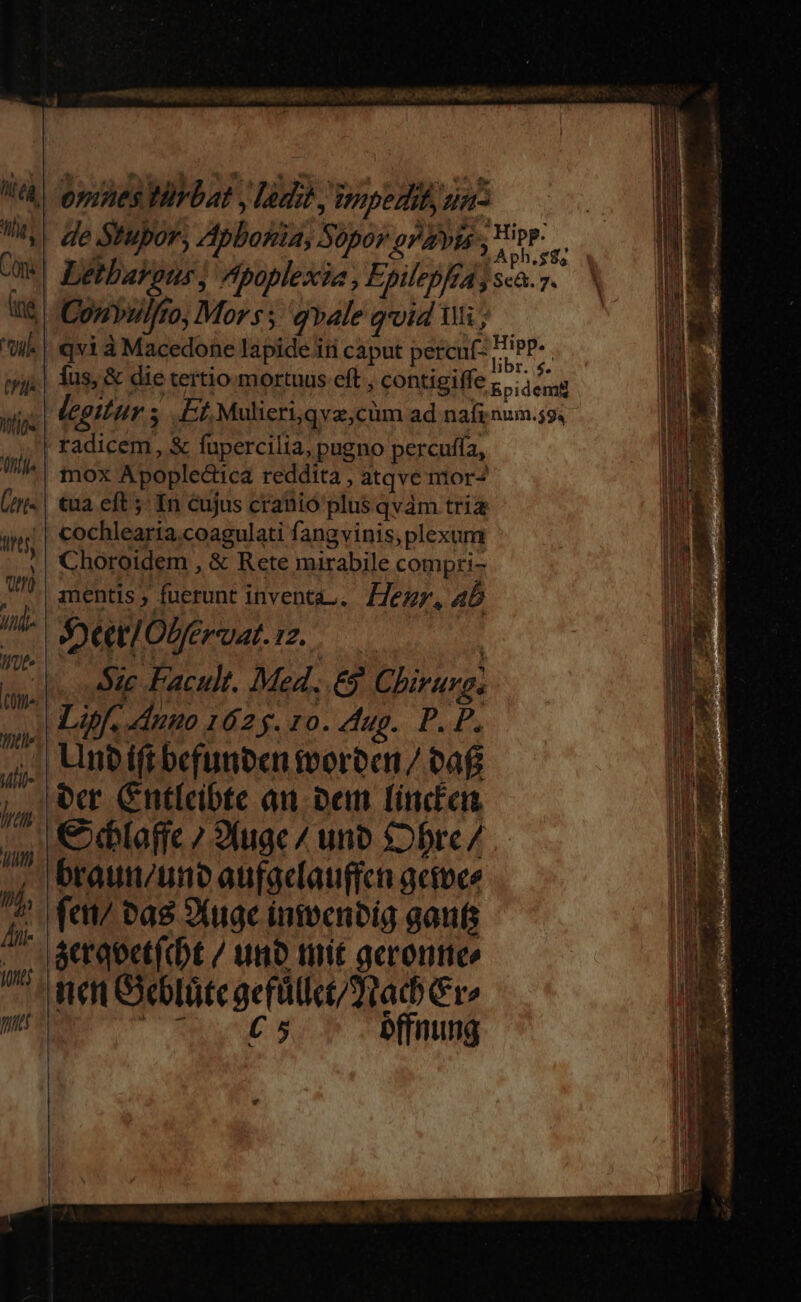 omnes turbat, lædit, impedit, un-
de Stupor, Aphonia, Sopor gravis,
Lethargus, Apoplexia, Epilepsia,
Convulsio, Mors; qvale qvid illi,
qvi à Macedone lapide in caput percus-
sus, & die tertio mortuus est, contigisse
legitur; Et Mulieri, qvæ, cùm ad nasi
radicem, & supercilia, pugno percussa,
mox Apoplectica reddita, atqve mor-
tua est; In cujus cranio plus qvàm tria
cochlearia coagulati sangvinis, plexum
Choroidem, & Rete mirabile compri-
mentis, fuerunt inventa. Henr. ab
Heer/ Observat. 12.
Sic Facult. Med. & Chirurg.
Lips. Anno 1625. 10. Aug. P. P.
Und ist befunden worden / daß
der Entleibte an dem lincken
Schlaffe / Auge / und Ohre /
braun/ und aufgelauffen gewe-
sen/ das Auge inwendig gantz
zerqvetscht / und mit geronne-
nen Geblüte gefüllet/ Nach Er-
C 5 öffnung
Hipp.
Aph. 58,
Sect. 7.
Hipp.
libr. 5.
Epidem.
num. 59,